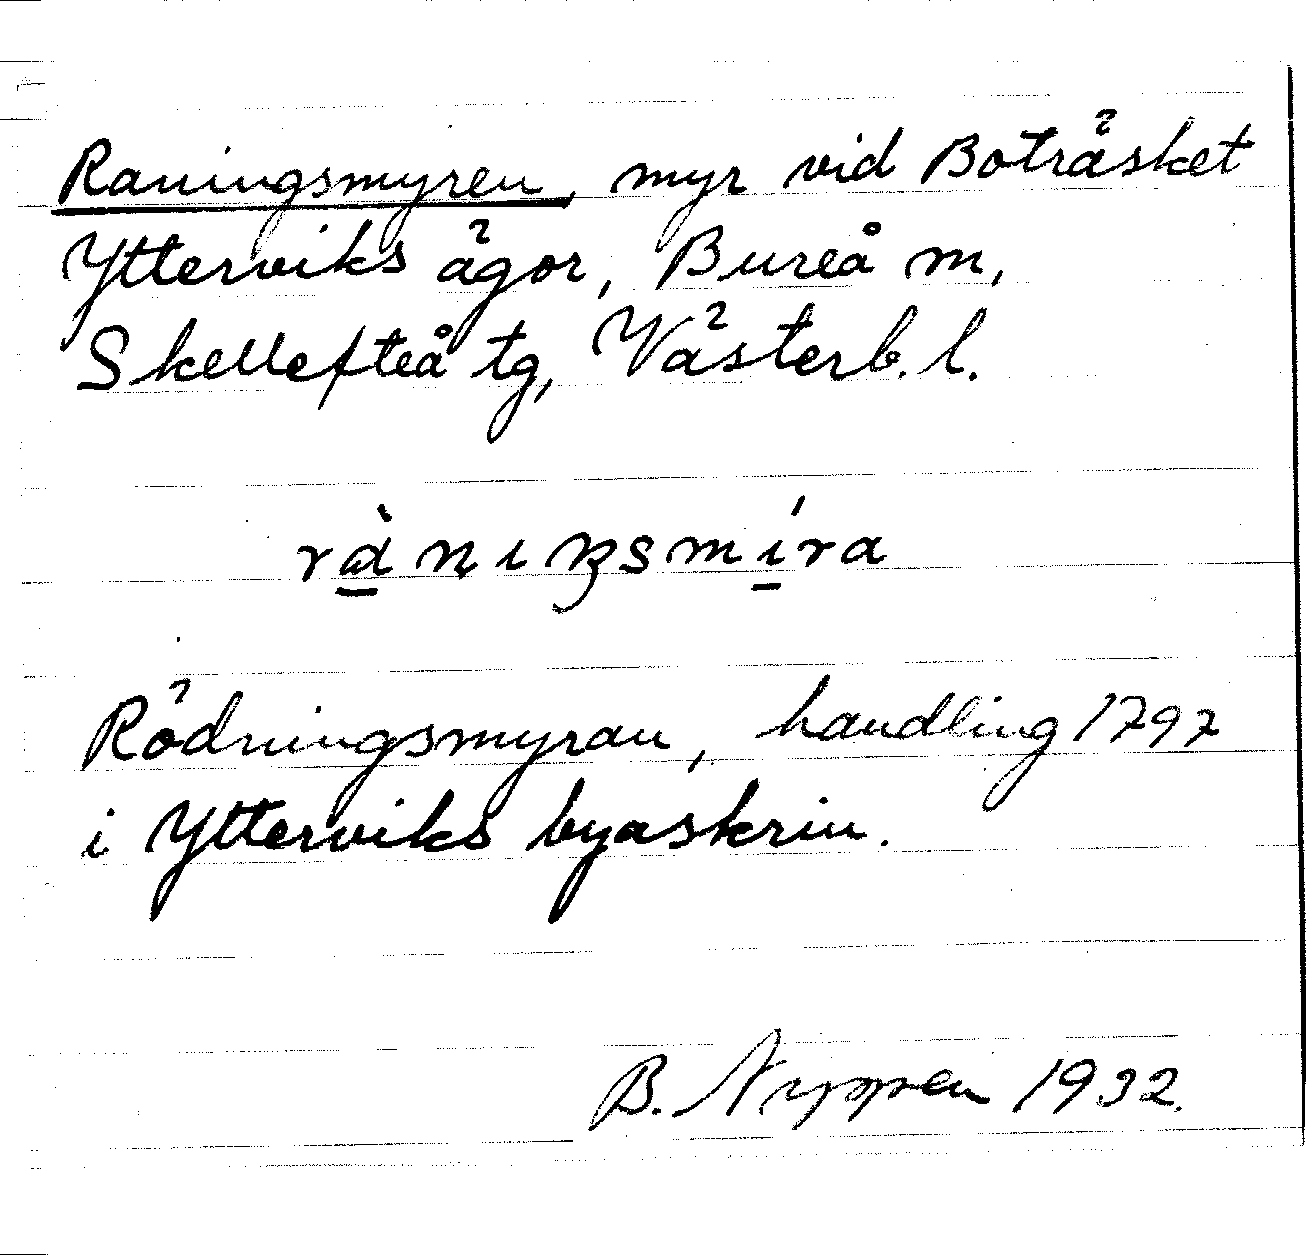 Raningsmyren, myr vid Boträsket
Ytterviks ägor, Bureå m,
Skellefteå tg, Västerb. l.
rànıŋsmíra
Rödningsmyran, handling 1797
i Ytterviks byaskrin.
B. Nyppen 1932.